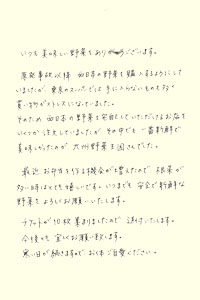 いつも美味しい野菜をありがとうございます。
原発事故以降 西日本の野菜を購入するようにして
いましたが、東京のスーパーでは手に入らないものも多く
買い物がストレスになっていました。
そのため 西日本の野菜を宅配していただけるお店を
いくつか注文していましたが その中でも 一番新鮮で
美味しかったのが 九州野菜王国さんでした。
最近 お弁当を作る機会が増えたので 根菜が
多い時はとても嬉しいです。いつまでも 安全で新鮮な
野菜をよろしくお願いいたします。
チケットが10枚集まりましたので 送付いたします。
今後とも 宜しくお願い致します。
寒い日が続きますので お体ご自愛ください。